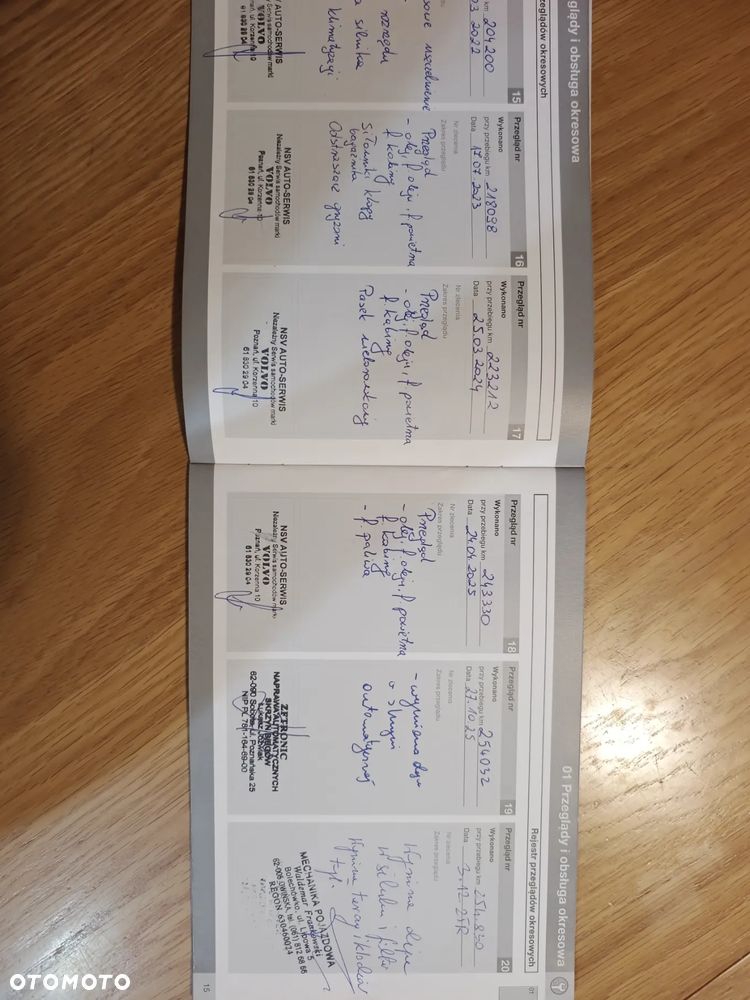 glądy i obsługa okresowa
rzeglądów okresowych
km 204200
03 2022
sowe uszczelnienie
rozrządu
silnika
klimatyzacji
AUTO-SERWIS
Serwis samochodów marki
VOLVO
ul. Korzenna 10
61 830 29 04
15
Przegląd nr
Wykonano
przy przebiegu km 218098
Data 17.07.2023
Nr zlecenia
Zakres przeglądu
Przegląd
- olej, f. oleju, f. powietrza
f. kabiny
Siłowniki klapy
bagażnika
Odstraszacz gryzoni
NSV AUTO-SERWIS
Niezależny Serwis samochodów marki
VOLVO
Poznań, ul. Korzenna 10
61 830 29 04
16
Przegląd nr
Wykonano
przy przebiegu km 223212
Data 25.03.2024
Nr zlecenia
Zakres przeglądu
Przegląd
- olej, f. oleju, f. powietrza
f. kabiny
Pasek wielorowkowy
NSV AUTO-SERWIS
Niezależny Serwis samochodów marki
VOLVO
Poznań, ul. Korzenna 10
61 830 29 04
17
01 Przeglądy i obsługa okresowa
Rejestr przeglądów okresowych
01
Przegląd nr
Wykonano
przy przebiegu km 243330
Data 24.04.2025
Nr zlecenia
Zakres przeglądu
Przegląd
- olej, f. oleju, f. powietrza
f. kabiny
- f. paliwa
NSV AUTO-SERWIS
Niezależny Serwis samochodów marki
VOLVO
Poznań, ul. Korzenna 10
61 830 29 04
18
Przegląd nr
Wykonano
przy przebiegu km 254032
Data 27.10.25
Nr zlecenia
Zakres przeglądu
- wymiana oleju
w skrzyni
automatycznej
ZFTRONIC
NAPRAWA AUTOMATYCZNYCH
SKRZYŃ BIEGÓW
ul. Poznańska 25
NIP PL 781-164-69-00
19
Przegląd nr
Wykonano
przy przebiegu km
Data 3-12-25R
Nr zlecenia
Zakres przeglądu
Wymiana oleju
w silniku i filtr
Wymiana tarczy i klocków
tył.
MECHANIKA POJAZDOWA
Waldemar Frankowski
Bolechówko, ul. Lipowa 5
62-005 OWIŃSKA, tel. (061) 812 68 66
REGON 630460024
20
15
OTOMOTO